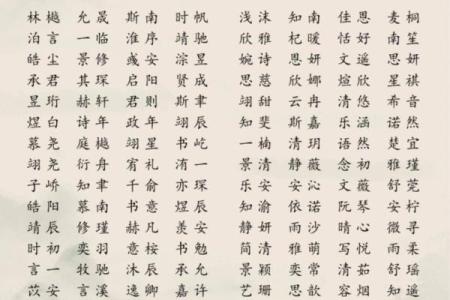 林樾 允晟 斯南 时帆 浅沫 知南 佳恩 麦桐
泊言 一临 淮序 靖驰 欣雅 杞暖 恬好 南笙
皓尘 景修 彧安 淙昱 婉诗 思妍 文遥 思妍
承君 其琛 启阳 贤成 语慈 欣娜 煊欣 星祺
昱珩 赫轩 君则 斯聿 翊甜 云冉 清悠 希音
煜白 诗年 政年 靖辰 知斐 斯嘉 乐涵 诺然
慕尧 庭樾 翊星 书屹 一楠 清玥 语然 楚宜
翊尧 衍舟 宥礼 洧一 景清 简薇 念初 雅瑾
子峤 知聿 千俞 亦琛 乐安 安沁 文薇 舒莞
皓阳 慕南 书意 煜辰 知渝 依诺 阮琴 安柠
靖辰 修瑾 赫凡 羡安 静妍 雨沙 晴心 微寻
时初 奕驰 意桉 书勉 简清 雅萌 诗悦 雨柔
言一 牧羽 沐辰 辰允 景颖 奕常 清容 舒瑶
苡安 言溪 逸卿 嘉许 艺珊 思歆 茹烟 知遥